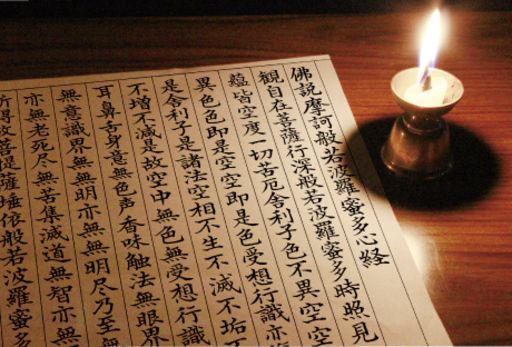 佛説摩訶般若波羅蜜多心経
観自在菩薩行深般若波羅蜜多時照見
蘊皆空度一切苦厄舎利子色不異空空
異色色即是空空即是色受想行識亦
是舎利子是諸法空相不生不滅不垢
不増不減是故空中無色無受想行識
耳鼻舌身意無色声香味触法無眼界
無意識界無無明亦無無明尽乃至
亦無老死尽無苦集滅道無智亦無
所得故菩提薩埵依般若波羅蜜